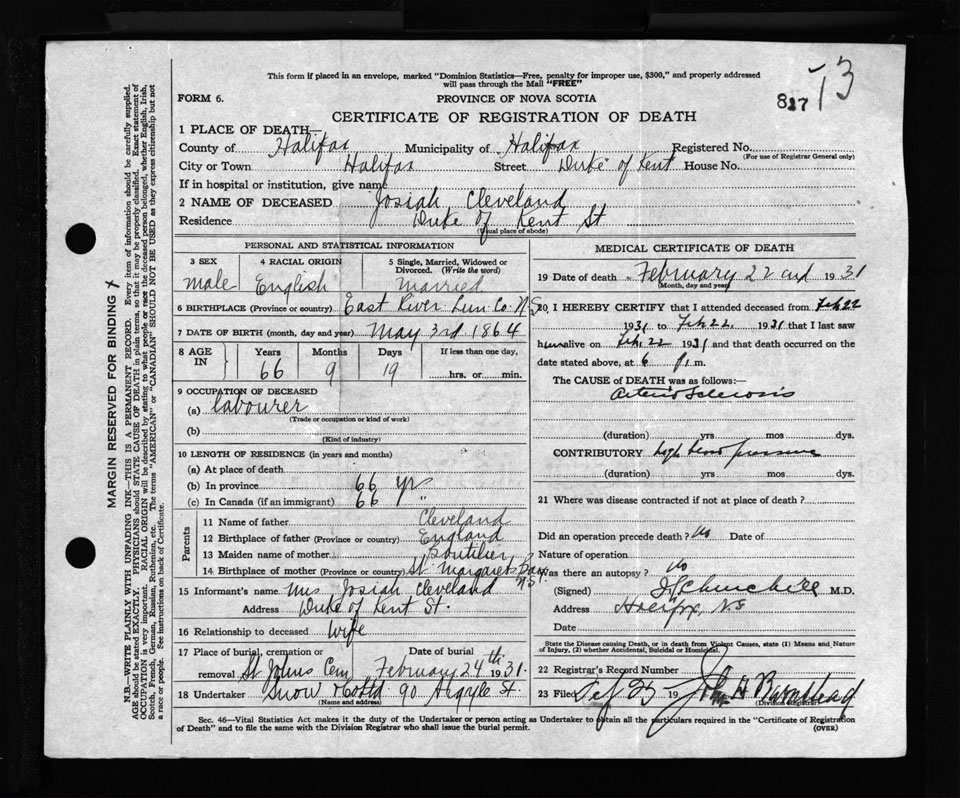 This form if placed in an envelope, marked "Dominion Statistics—Free, penalty for improper use, $300," and properly addressed
will pass through the Mail "FREE"
13
817
FORM 6.
PROVINCE OF NOVA SCOTIA
CERTIFICATE OF REGISTRATION OF DEATH
1 PLACE OF DEATH—
County of Halifax Municipality of Halifax Registered No.
(For use of Registrar General only)
City or Town Halifax Street Duke of Kent House No.
If in hospital or institution, give name
2 NAME OF DECEASED Josiah Cleveland
Residence Duke of Kent St
(Usual place of abode)
PERSONAL AND STATISTICAL INFORMATION
3 SEX male
4 RACIAL ORIGIN English
5 Single, Married, Widowed or Divorced. (Write the word) Married
6 BIRTHPLACE (Province or country) East River Lun. Co. N.S.
7 DATE OF BIRTH (month, day and year) May 3rd 1864
8 AGE IN Years Months Days If less than one day,
66 9 19 hrs. or min.
9 OCCUPATION OF DECEASED
(a) labourer
(Trade or occupation or kind of work)
(b)
(Kind of industry)
10 LENGTH OF RESIDENCE (in years and months)
(a) At place of death
(b) In province 66 yrs
(c) In Canada (if an immigrant) 66 "
Parents
11 Name of father Cleveland
12 Birthplace of father (Province or country) England
13 Maiden name of mother Boutilier
14 Birthplace of mother (Province or country) St. Margarets Bay. N.S.
15 Informant's name Mrs Josiah Cleveland
Address Duke of Kent St.
16 Relationship to deceased wife
17 Place of burial, cremation or removal St Johns Cem
Date of burial February 24th 1931
18 Undertaker Snow & Co Ltd 90 Argyle St.
(Name and address)
MEDICAL CERTIFICATE OF DEATH
19 Date of death February 22nd 1931
(Month, day and year)
20 I HEREBY CERTIFY that I attended deceased from Feb 22
1931 to Feb 22, 1931 that I last saw
him alive on Feb. 22 1931 and that death occurred on the
date stated above, at 6 P. m.
The CAUSE OF DEATH was as follows:—
Arterio Sclerosis
(duration) yrs mos dys.
CONTRIBUTORY high blood pressure
(duration) yrs. mos dys.
21 Where was disease contracted if not at place of death?
Did an operation precede death? No Date of
Nature of operation
Was there an autopsy? No
(Signed) Churchill M.D.
Address Halifax, N.S
Date
State the Disease causing Death, or in death from Violent Causes, state (1) Means and Nature
of Injury, (2) whether Accidental, Suicidal or Homicidal.
22 Registrar's Record Number
23 Filed 23 19 John H Barnstead
(Division Registrar)
Sec. 46—Vital Statistics Act makes it the duty of the Undertaker or person acting as Undertaker to obtain all the particulars required in the "Certificate of Registration
of Death" and to file the same with the Division Registrar who shall issue the burial permit.
(OVER)
MARGIN RESERVED FOR BINDING
N.B.—WRITE PLAINLY WITH UNFADING INK—THIS IS A PERMANENT RECORD. Every item of information should be carefully supplied.
AGE should be stated EXACTLY. PHYSICIANS should STATE CAUSE OF DEATH in plain terms, so that it may be properly classified. Exact statement of
OCCUPATION is very important. RACIAL ORIGIN will be described by stating to what people or race the deceased person belonged, whether English, Irish,
Scotch, French, German, Russian, Ruthenian, etc. The terms "AMERICAN" or "CANADIAN" SHOULD NOT BE USED as they express citizenship but not
a race or people. See instructions on back of Certificate.